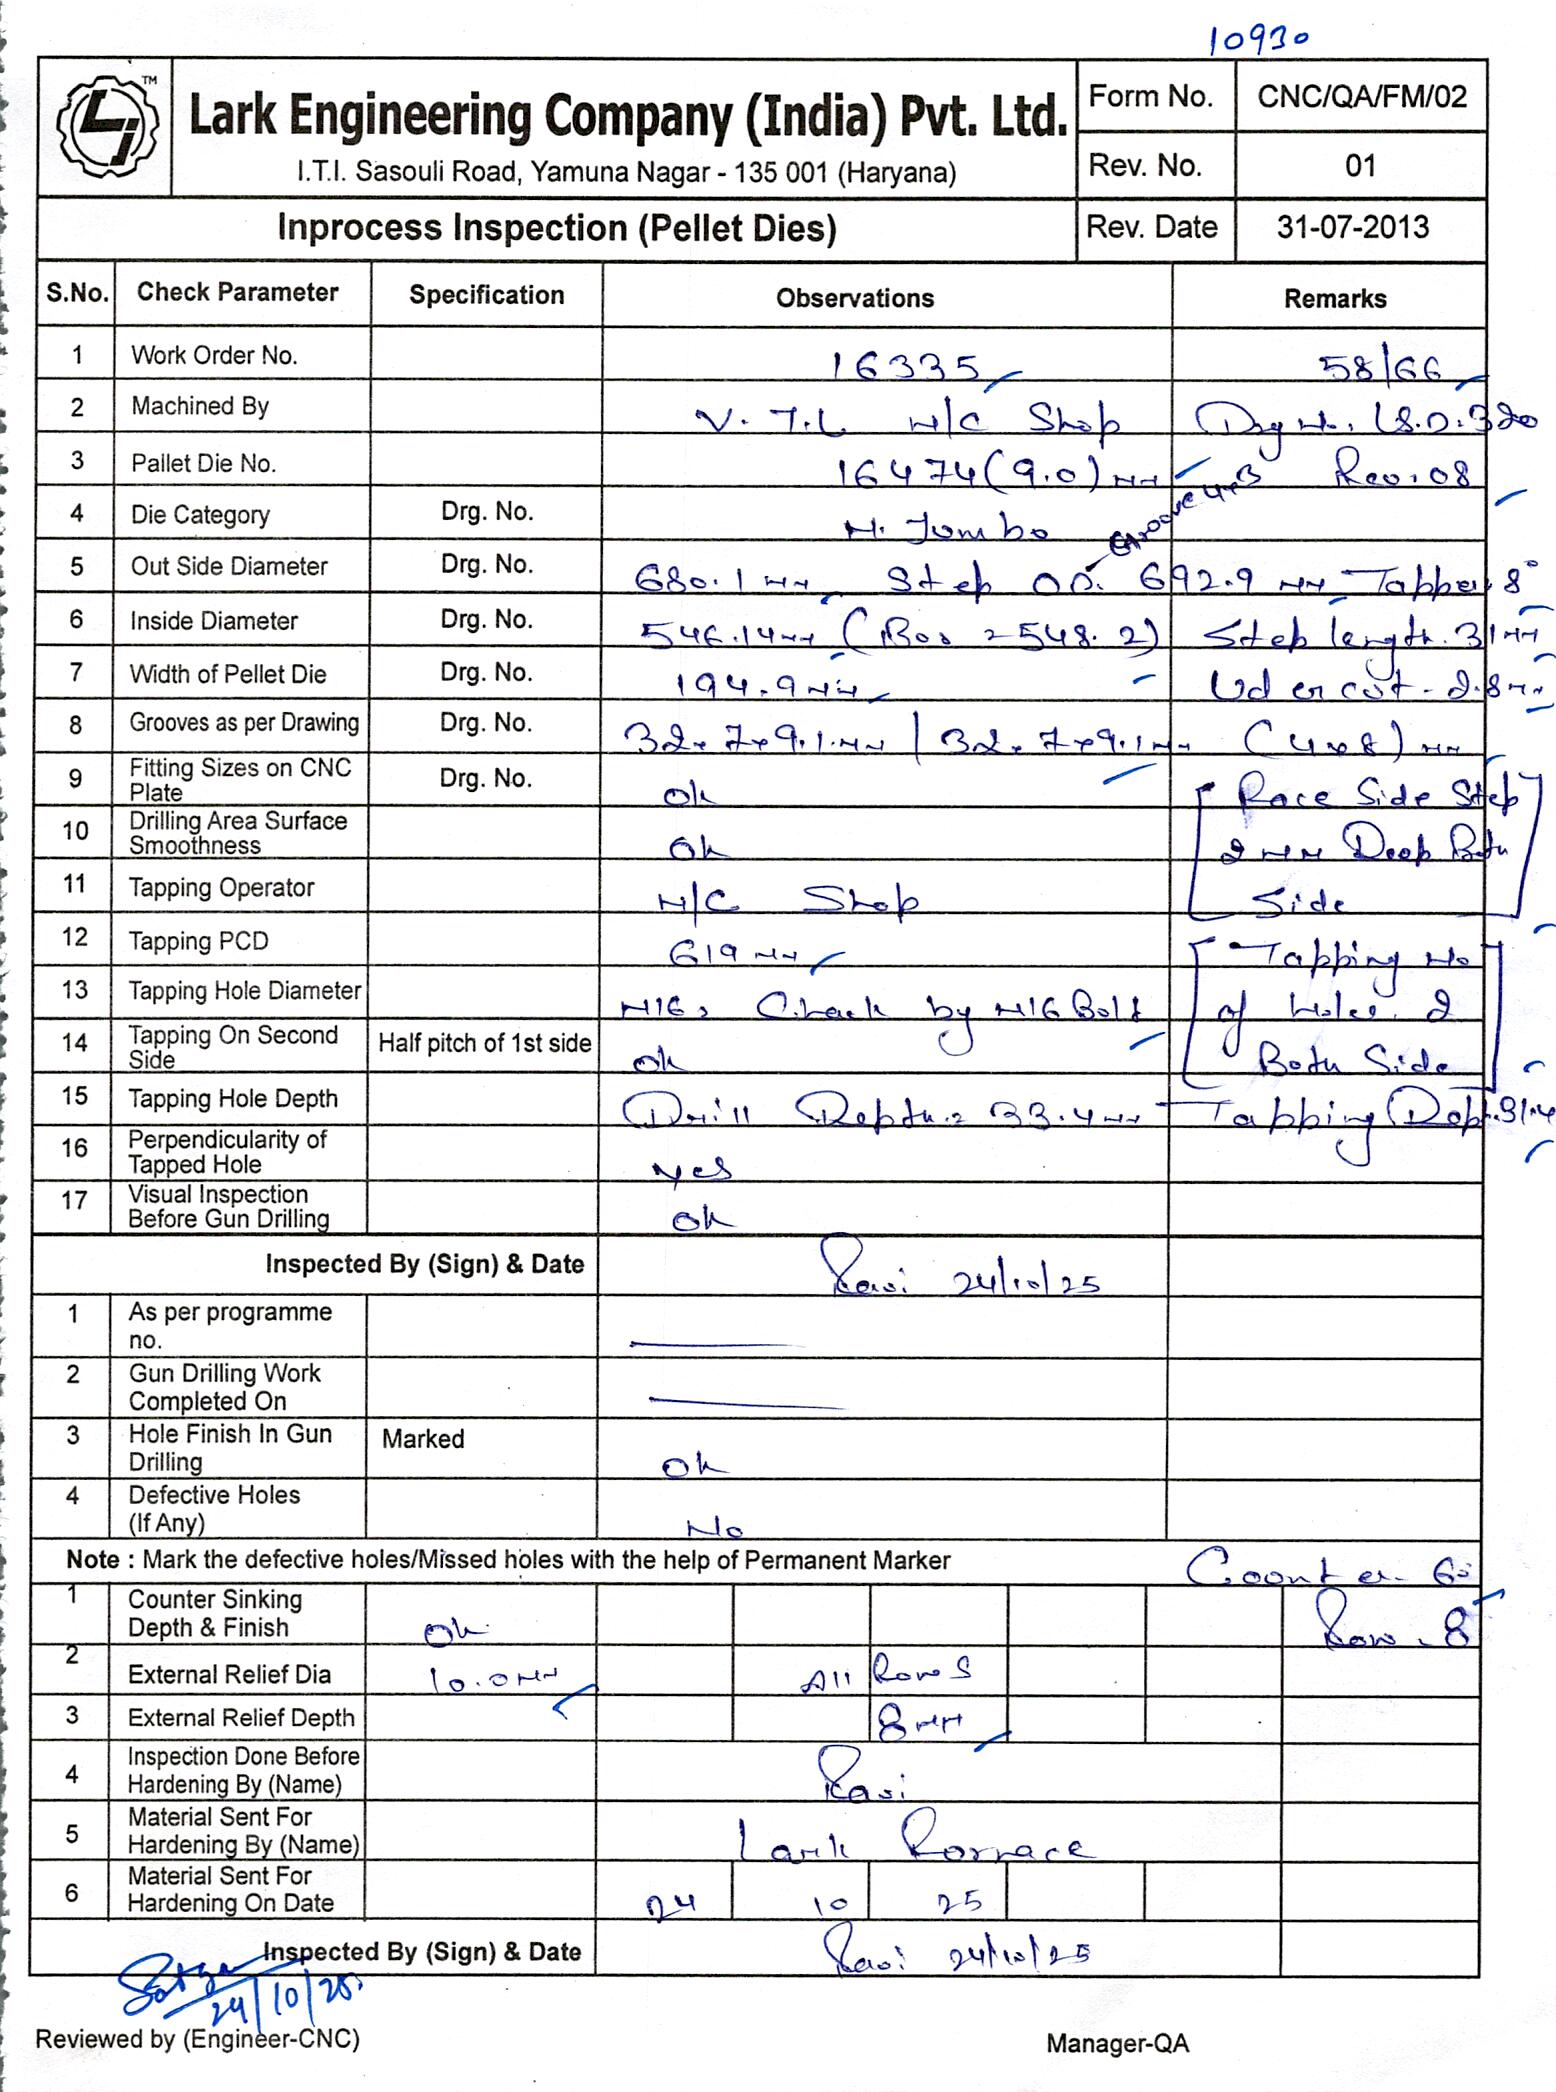 10930
TM
Lark Engineering Company (India) Pvt. Ltd.
I.T.I. Sasouli Road, Yamuna Nagar - 135 001 (Haryana)
Form No. CNC/QA/FM/02
Rev. No. 01
Inprocess Inspection (Pellet Dies)
Rev. Date 31-07-2013
S.No. Check Parameter Specification Observations Remarks
1 Work Order No. 16335 58/66
2 Machined By V.T.L M/C Shop Drg No. LS.D.320
3 Pallet Die No. 16474(9.0)mm Rev.08
4 Die Category Drg. No. M. Jumbo Groove 4x3
5 Out Side Diameter Drg. No. 680.1mm Step OD. 692.9 mm Tapper 8°
6 Inside Diameter Drg. No. 546.14mm ( = 548.2) Step length. 31mm
7 Width of Pellet Die Drg. No. 194.9mm Ud er cut - 2.8mm
8 Grooves as per Drawing Drg. No. 32.7x9.1mm | 32.7x9.1mm (4x8)mm
9 Fitting Sizes on CNC Plate Drg. No. ok [Race Side Step
10 Drilling Area Surface Smoothness ok 2mm Deep Both
11 Tapping Operator M/C Shop Side]
12 Tapping PCD 619mm [Tapping No
13 Tapping Hole Diameter M16, Check by M16 Bolt of holes. 2
14 Tapping On Second Side Half pitch of 1st side ok Both Side]
15 Tapping Hole Depth Drill Depth = 33.4mm Tapping Dept. 31.4
16 Perpendicularity of Tapped Hole yes
17 Visual Inspection Before Gun Drilling ok
Inspected By (Sign) & Date Ravi 24/10/25
1 As per programme no.
2 Gun Drilling Work Completed On
3 Hole Finish In Gun Drilling Marked ok
4 Defective Holes (If Any) No
Note : Mark the defective holes/Missed holes with the help of Permanent Marker Counter 60
1 Counter Sinking Depth & Finish ok Row. 8
2 External Relief Dia 10.0mm All Rows
3 External Relief Depth 8mm
4 Inspection Done Before Hardening By (Name) Ravi
5 Material Sent For Hardening By (Name) Lark Fornace
6 Material Sent For Hardening On Date 24 10 25
Inspected By (Sign) & Date Ravi 24/10/25
24/10/25.
Reviewed by (Engineer-CNC) Manager-QA